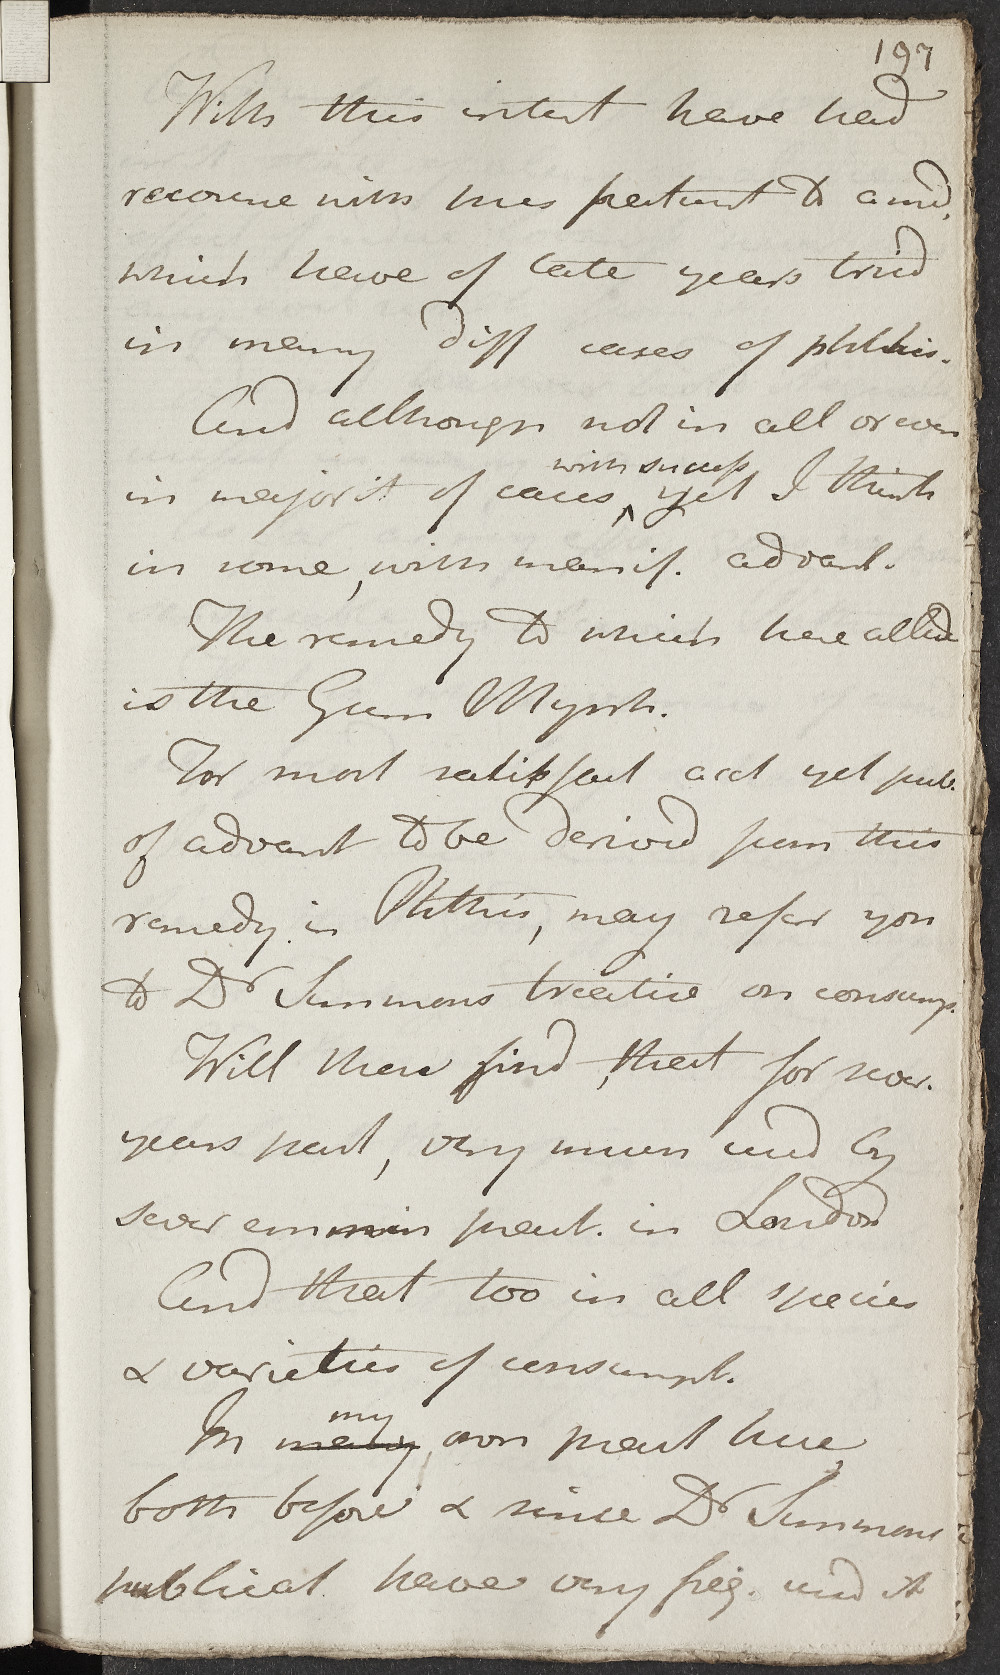 197
With this intent have had
recourse with this patient to a med.
which have of late years tried
in many diff cases of phthisis.
And although not in all or even
with success
in majorit of cases, yet I think
in some, with manif. advant.
The remedy to which here allude
is the Gum Myrrh.
For most satisfact acct yet pub.
of advant to be derived from this
remedy in Phthisis, may refer you
to Dr Simmons treatise on consump.
Will there find, that for sever.
years past, very much used by
sever emin pract. in London
And that too in all species
& varieties of consumpt.
my
In many own pract here,
both before & since Dr Simmons
publicat. have very freq. used it